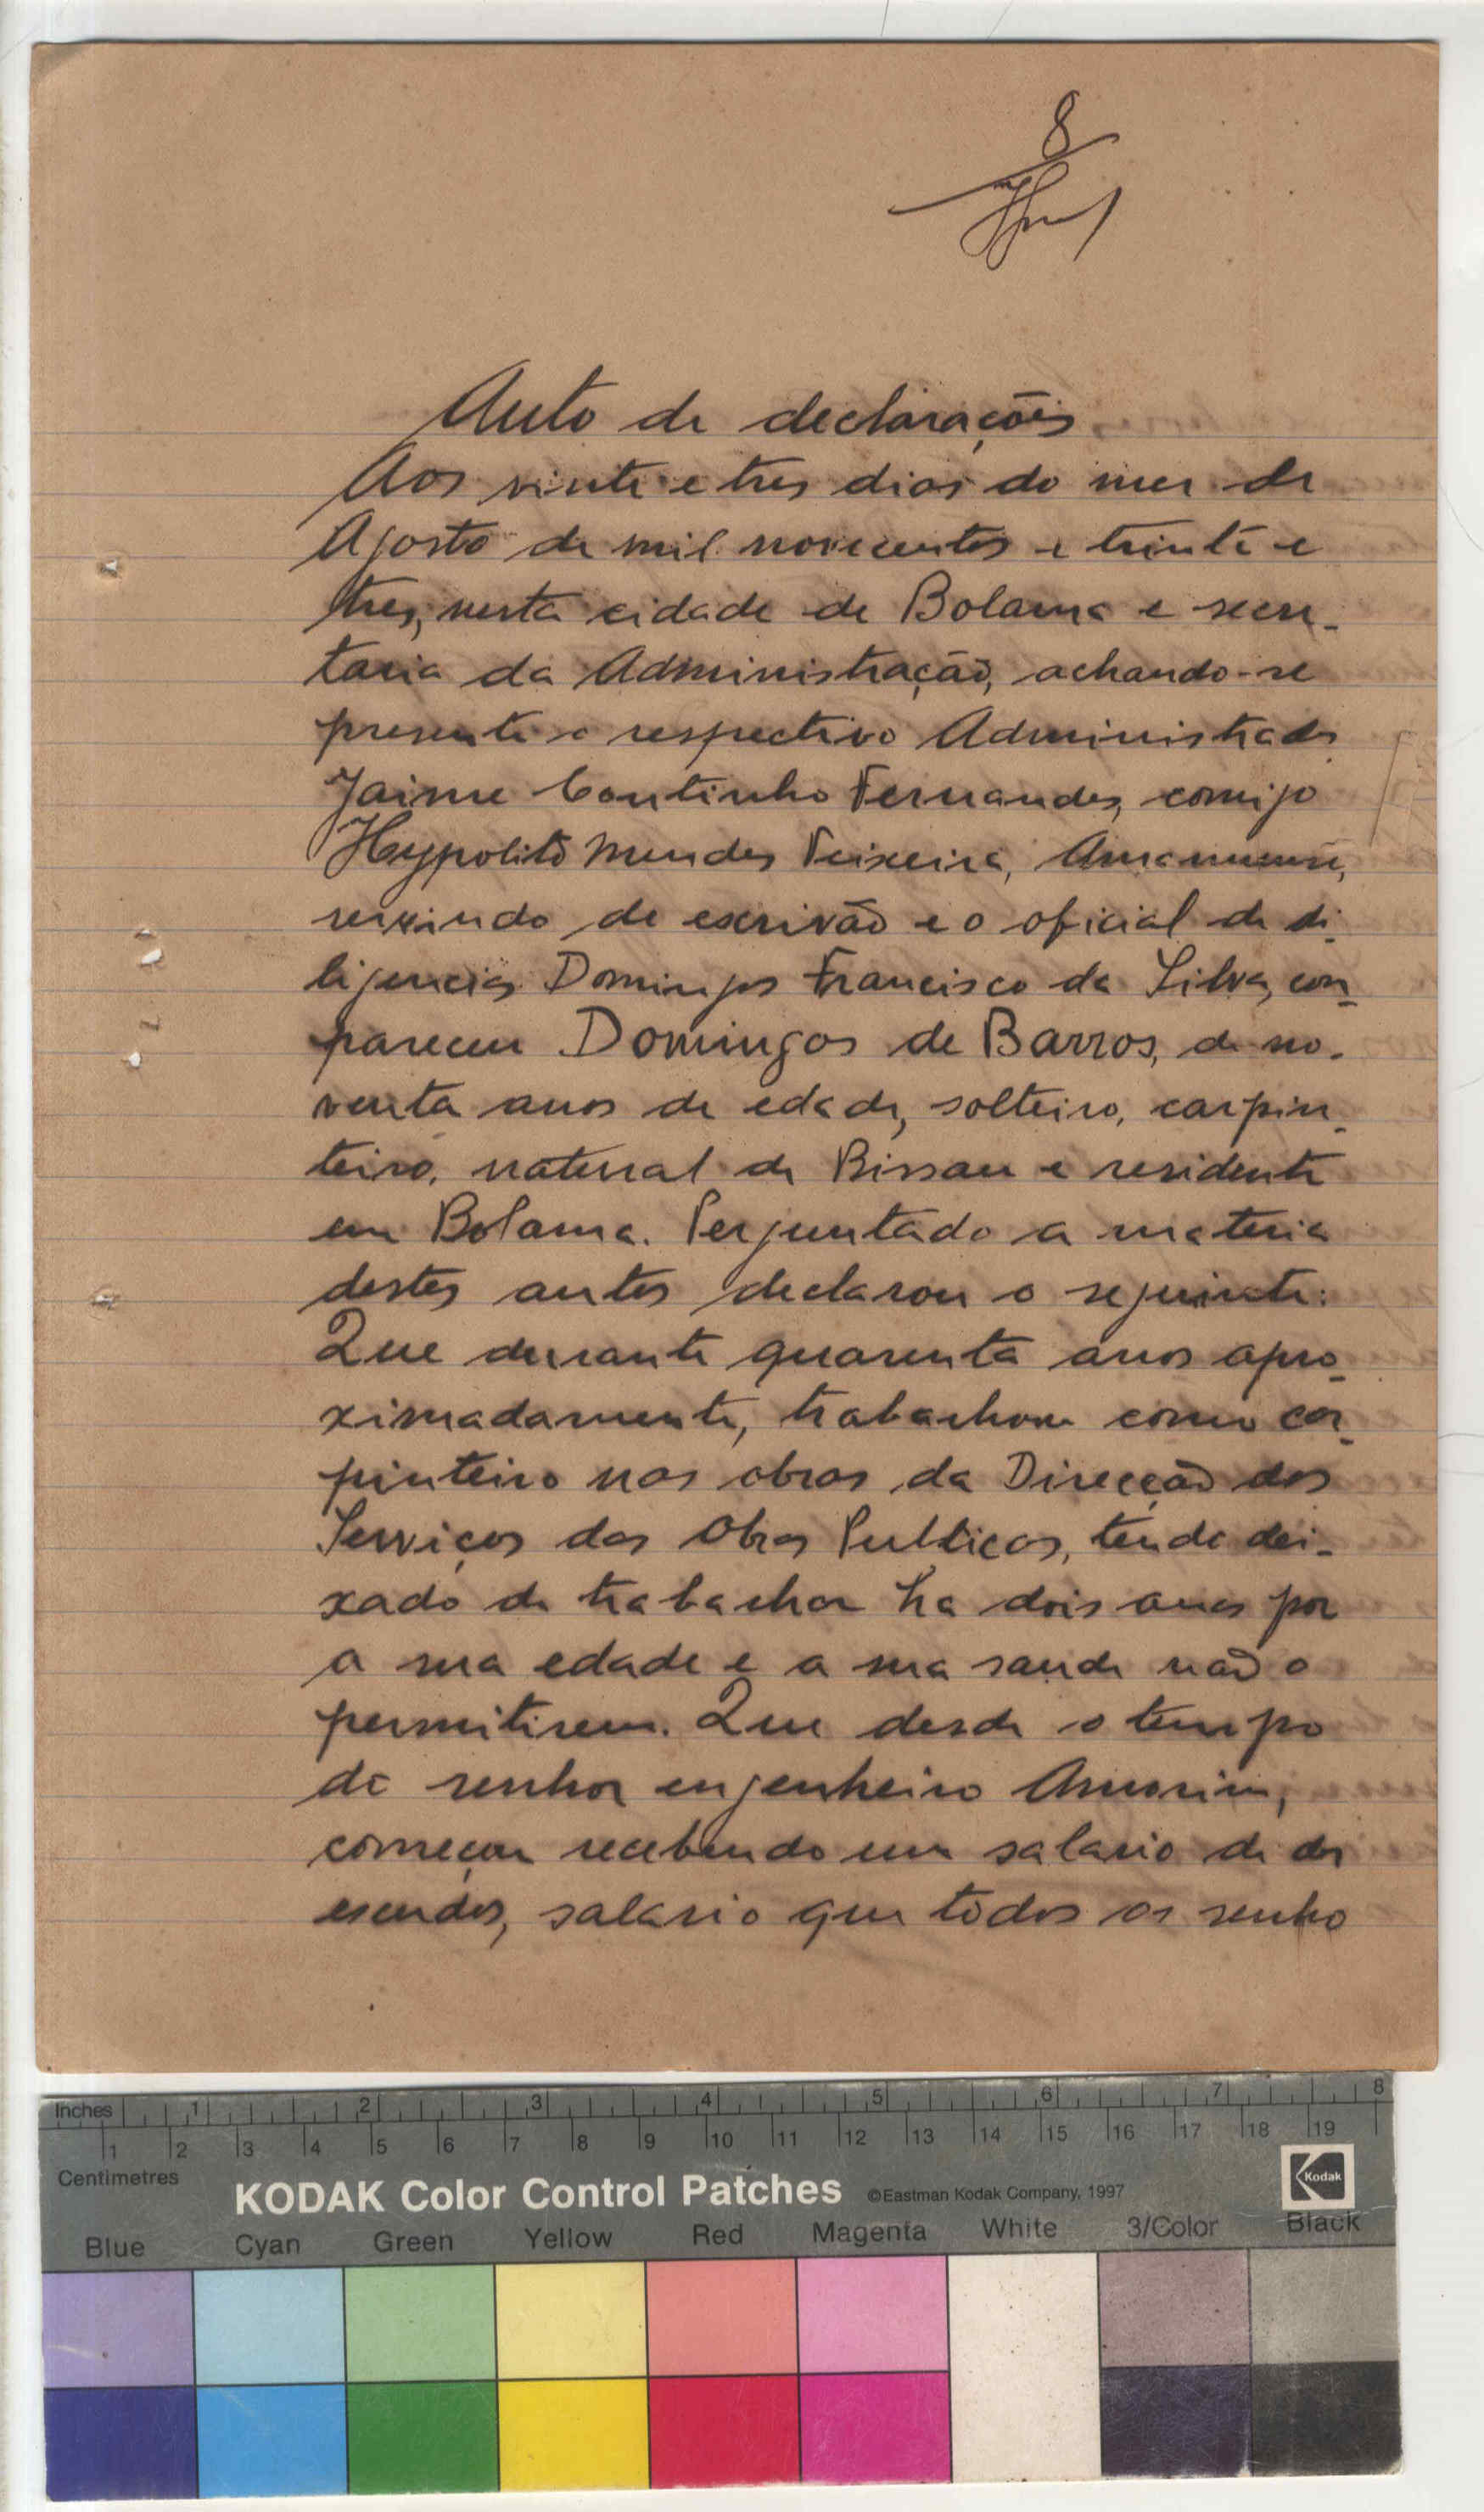 8
Auto de declarações
Aos vinte e tres dias do mez de
Agosto de mil novecentos e trinta e
tres, nesta cidade de Bolama e secre-
taria da Administração, achando-se
presente o respectivo Administrador
Jaime Coutinho Fernandes, comigo
Hypolito Mendes Teixeira, Amanuense,
servindo de escrivão e o oficial de di-
ligencias Domingos Francisco da Silva, com-
pareceu Domingos de Barros, de no-
venta anos de edade, solteiro, carpin-
teiro, natural de Bissau e residente
em Bolama. Perguntado a materia
destes autos declarou o seguinte:
Que durante quarenta anos apro-
ximadamente, trabalhou como car-
pinteiro nas obras da Direcção dos
Serviços das Obras Publicas, tendo dei-
xado de trabalhar ha dois anos por
a sua edade e a sua saude não o
permitirem. Que desde o tempo
do senhor engenheiro Amorim,
começou recebendo um salario de dez
escudos, salario que todos os senho
Inches 1 2 3 4 5 6 7 8
1 2 3 4 5 6 7 8 9 10 11 12 13 14 15 16 17 18 19
Centimetres
KODAK Color Control Patches ©Eastman Kodak Company, 1997 Kodak
Blue Cyan Green Yellow Red Magenta White 3/Color Black